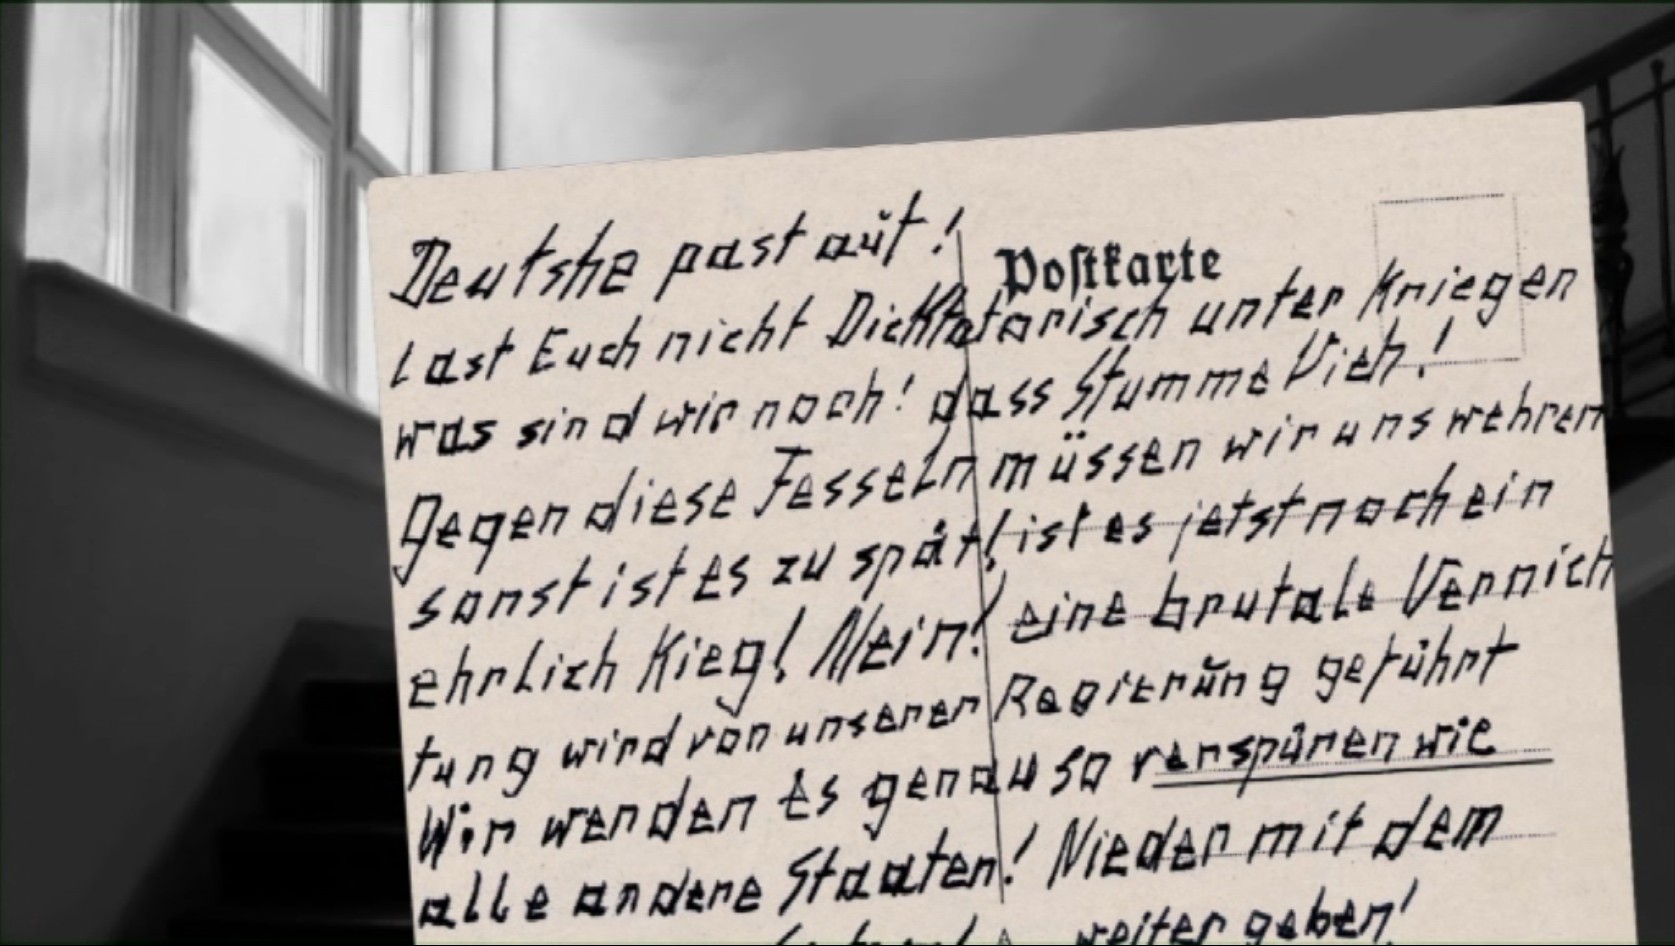 Deutshe past auf!
Postkarte
last Euch nicht Dicktatorisch unter Kriegen
was sind wir noch! dass Stumme Vieh!
Gegen diese Fesseln müssen wir uns wehren
sonst ist es zu spät! ist es jetst noch ein
ehrlich Kieg! Nein! eine brutale Vernich
tung wird von unserer Regierung geführt
Wir werden es genau so verspüren wie
alle andere Staaten! Nieder mit dem
weiter geben!